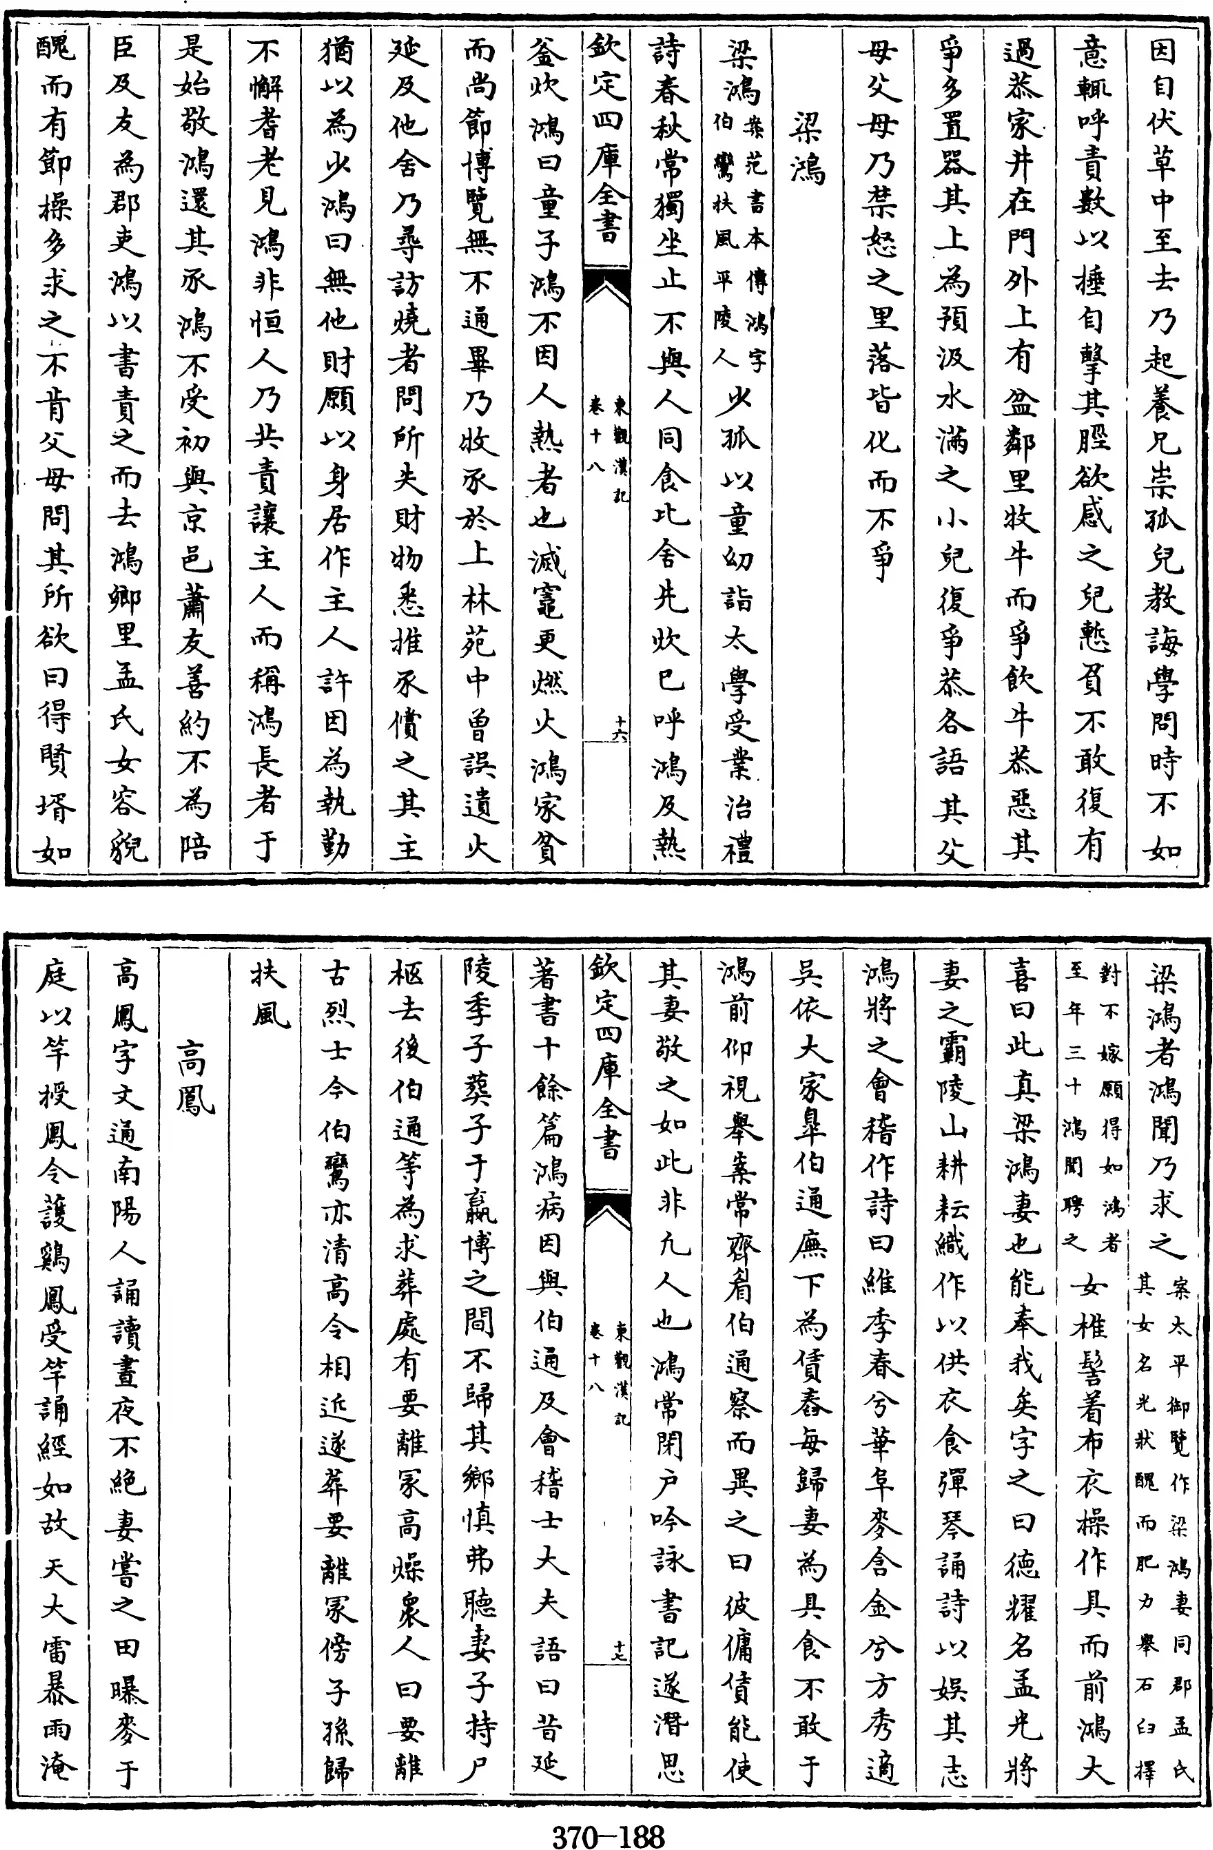 因自伏草中至去乃起養兄崇孤兒教誨學問時不如
意輒呼責數以捶自擊其脛欲感之兒慙負不敢復有
過恭家井在門外上有盆鄰里牧牛而爭飲牛恭惡其
爭多置器其上為預汲水滿之小兒復爭恭各語其父
母父母乃禁怒之里落皆化而不爭
梁鴻
梁鴻案范書本傳鴻字伯鸞扶風平陵人少孤以童幼詣太學受業治禮
詩春秋常獨坐止不與人同食比舍先炊已呼鴻及熱
欽定四庫全書
東觀漢記
卷十八
十六
釜炊鴻曰童子鴻不因人熱者也滅竈更燃火鴻家貧
而尚節博覽無不通畢乃牧豕於上林苑中曾誤遺火
延及他舍乃尋訪燒者問所失財物悉推豕償之其主
猶以為少鴻曰無他財願以身居作主人許因為執勤
不懈耆老見鴻非恒人乃共責讓主人而稱鴻長者于
是始敬鴻還其豕鴻不受初與京邑蕭友善約不為陪
臣及友為郡吏鴻以書責之而去鴻鄉里孟氏女容貌
醜而有節操多求之不肯父母問其所欲曰得賢壻如
梁鴻者鴻聞乃求之案太平御覽作梁鴻妻同郡孟氏其女名光狀醜而肥力舉石臼擇
對不嫁願得如鴻者至年三十鴻聞聘之女椎髻着布衣操作具而前鴻大
喜曰此真梁鴻妻也能奉我矣字之曰德耀名孟光將
妻之霸陵山耕耘織作以供衣食彈琴誦詩以娛其志
鴻將之會稽作詩曰維季春兮華阜麥含金兮方秀適
吳依大家臯伯通廡下為賃舂每歸妻為具食不敢于
鴻前仰視舉案常齊眉伯通察而異之曰彼傭賃能使
其妻敬之如此非凡人也鴻常閉户吟詠書記遂潛思
欽定四庫全書
東觀漢記
卷十八
十七
著書十餘篇鴻病因與伯通及會稽士大夫語曰昔延
陵季子葬子于嬴博之間不歸其鄉慎弗聽妻子持尸
柩去後伯通等為求葬處有要離冢高燥衆人曰要離
古烈士今伯鸞亦清高令相近遂葬要離冢傍子孫歸
扶風
高鳳
高鳳字文通南陽人誦讀晝夜不絶妻嘗之田曝麥于
庭以竿授鳳令護鷄鳳受竿誦經如故天大雷暴雨淹
370-188